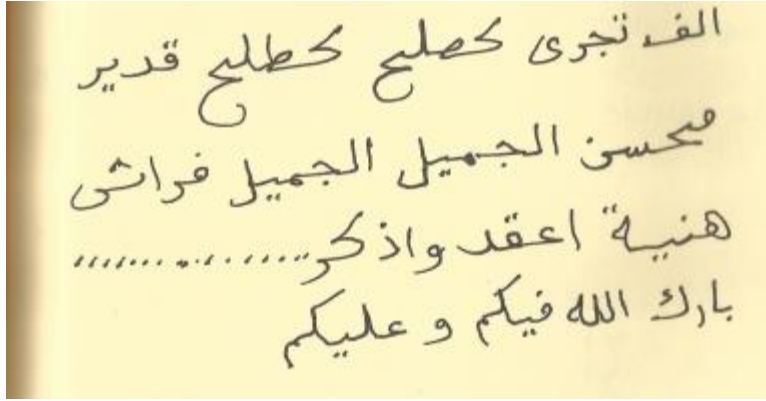 الف تجرى كصلبح كطلبح قدير
محسن الجميل الجميل فراش
هنية اعقد واذكر ................
بارك الله فيكم و عليكم